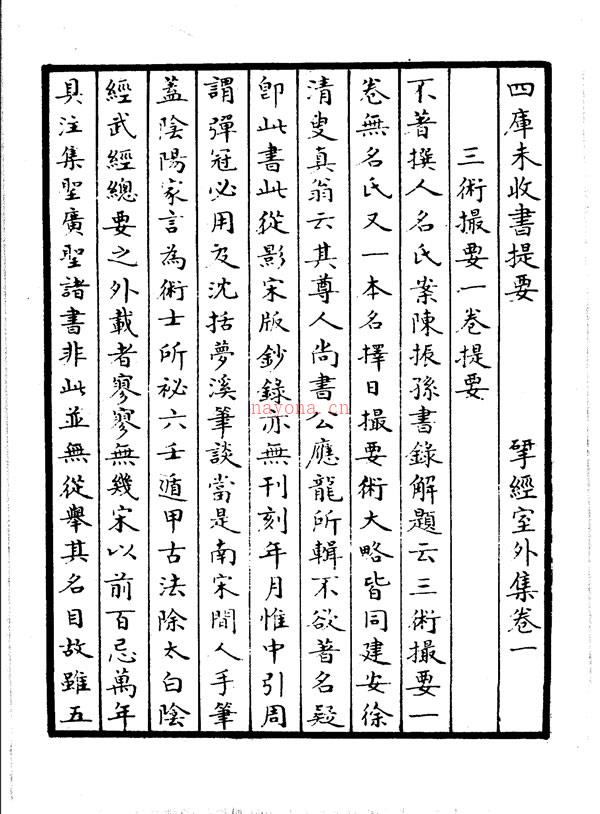 四庫未收書提要　揅經室外集卷一
三術撮要一卷提要
不著撰人名氏案陳振孫書錄解題云三術撮要一
卷無名氏又一本名擇日撮要術大略皆同建安徐
清叟真翁云其尊人尚書公應龍所輯不欲著名疑
卽此書此從影宋版鈔錄亦無刊刻年月惟中引周
謂彈冠必用及沈括夢溪筆談當是南宋間人手筆
蓋陰陽家言為術士所祕六壬遁甲古法除太白陰
經武經總要之外載者寥寥無幾宋以前百忌萬年
具注集聖廣聖諸書非此並無從舉其名目故雖五
nayona.cn